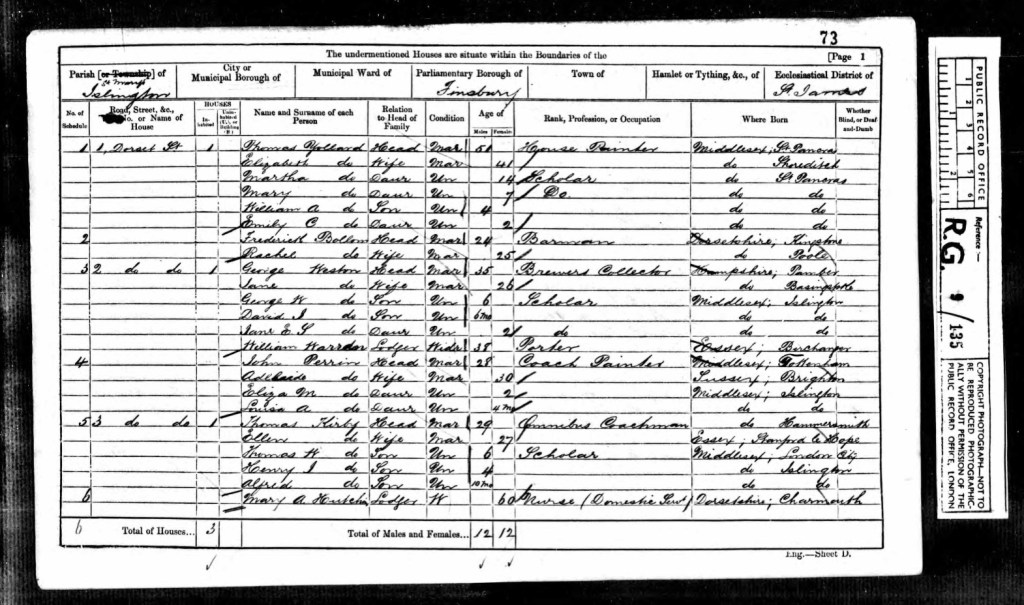 73
The undermentioned Houses are situate within the Boundaries of the
[Page 1
Parish [or Township] of St Mary's Islington
City or Municipal Borough of
Municipal Ward of
Parliamentary Borough of Finsbury
Town of
Hamlet or Tything, &c., of
Ecclesiastical District of St. James
No. of Schedule
Road, Street, &c., No. or Name of House
HOUSES
Inhabited
Uninhabited (U.), or Building (B.)
Name and Surname of each Person
Relation to Head of Family
Condition
Age of
Males
Females
Rank, Profession, or Occupation
Where Born
Whether Blind, or Deaf-and-Dumb
1 1, Dorset St 1 Thomas Head Mar 51 House Painter Middlesex; St Pancras
Elizabeth do Wife Mar 41 do Shoreditch
Martha do Daur Un 14 Scholar do St Pancras
Mary do Daur Un 7 Do do do
William A do Son Un 4 do do
Emily C do Daur Un 2 do do
2 Frederick Bollom Head Mar 24 Barman Dorsetshire; Kingstone
Rachel do Wife Mar 25 do Poole
3 2 do do 1 George Weston Head Mar 35 Brewers Collector Hampshire; Pamber
Jane do Wife Mar 26 do Basingstoke
George W do Son Un 6 Scholar Middlesex; Islington
David J do Son Un 6 mo do do
Jane E S do Daur Un 2 do do do
William Lodger Widr 38 Porter Essex; Birchanger
4 John Perrin Head Mar 28 Coach Painter Middlesex; Tottenham
Adelaide do Wife Mar 30 Sussex; Brighton
Eliza M do Daur Un 2 Middlesex; Islington
Louisa A do Daur Un 4 Mo do do
5 3 do do 1 Thomas Kirby Head Mar 29 Omnibus Coachman do Hammersmith
Ellen do Wife Mar 27 Essex; Stanford le Hope
Thomas W do Son Un 6 Scholar Middlesex; London City
Henry J do Son Un 4 do Islington
Alfred do Son Un 10 mo do do
6 Mary A Lodger W 60 Nurse (Domestic Servt) Dorsetshire; Charmouth
6 Total of Houses... 3 Total of Males and Females... 12 12
Eng.—Sheet D.
PUBLIC RECORD OFFICE
1 2 3 4 5 6
Reference:—
R.G. 9 / 135
COPYRIGHT PHOTOGRAPH—NOT TO BE REPRODUCED PHOTOGRAPHICALLY WITHOUT PERMISSION OF THE PUBLIC RECORD OFFICE, LONDON